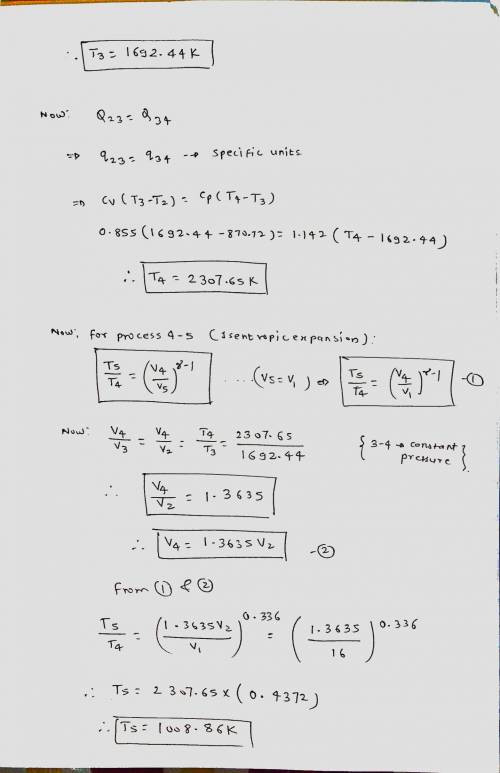 ∴ T3 = 1692.44K
Now: Q23 = Q34
⇒ q23 = q34 → specific units
⇒ Cv (T3-T2) = Cp (T4-T3)
0.855 (1692.44 - 870.72) = 1.142 (T4 - 1692.44)
∴ T4 = 2307.65K
Now, for process 4-5 (Isentropic expansion):
T5/T4 = (V4/V5)^γ-1 .... (V5 = V1) ⇒ T5/T4 = (V4/V1)^γ-1 -①
Now: V4/V3 = V4/V2 = T4/T3 = 2307.65/1692.44 {3-4 → constant pressure}
∴ V4/V2 = 1.3635
∴ V4 = 1.3635 V2 -②
from ① & ②
T5/T4 = (1.3635V2/V1)^0.336 = (1.3635/16)^0.336
∴ T5 = 2307.65 x (0.4372)
∴ T5 = 1008.86K